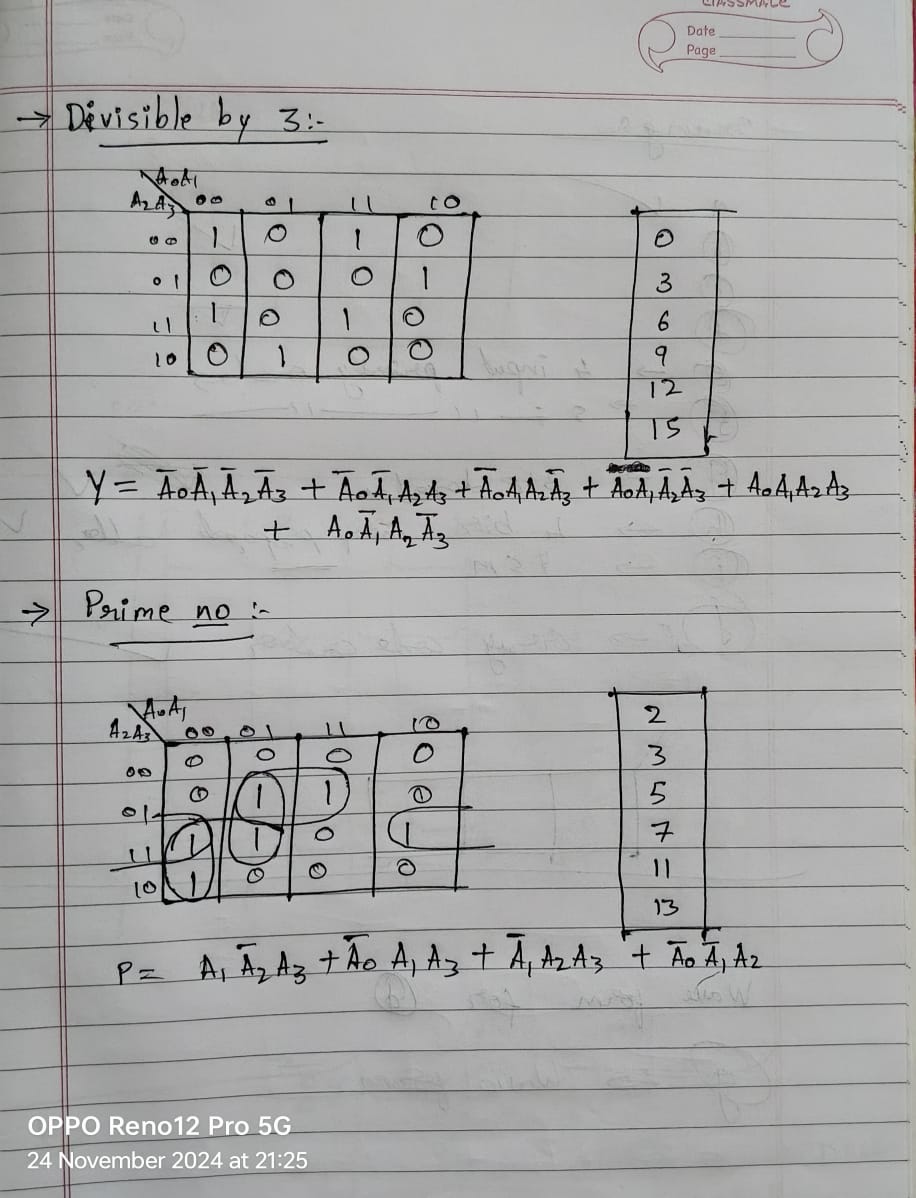 classmate
Date
Page
→ Divisible by 3:-
A₀A₁
A₂A₃ 00 01 11 10
00 1 0 1 0
01 0 0 0 1
11 1 0 1 0
10 0 1 0 0
0
3
6
9
12
15
Y = A̅₀A̅₁A̅₂A̅₃ + A̅₀A̅₁A₂A₃ + A̅₀A₁A₂A̅₃ + A₀A₁A̅₂A̅₃ + A₀A₁A₂A₃
+ A₀A̅₁A₂A̅₃
→ Prime no :-
A₀A₁
A₂A₃ 00 01 11 10
00 0 0 0 0
01 0 1 1 0
11 1 1 0 1
10 1 0 0 0
2
3
5
7
11
13
P = A₁A̅₂A₃ + A̅₀A₁A₃ + A̅₁A₂A₃ + A̅₀A̅₁A₂
OPPO Reno12 Pro 5G
24 November 2024 at 21:25